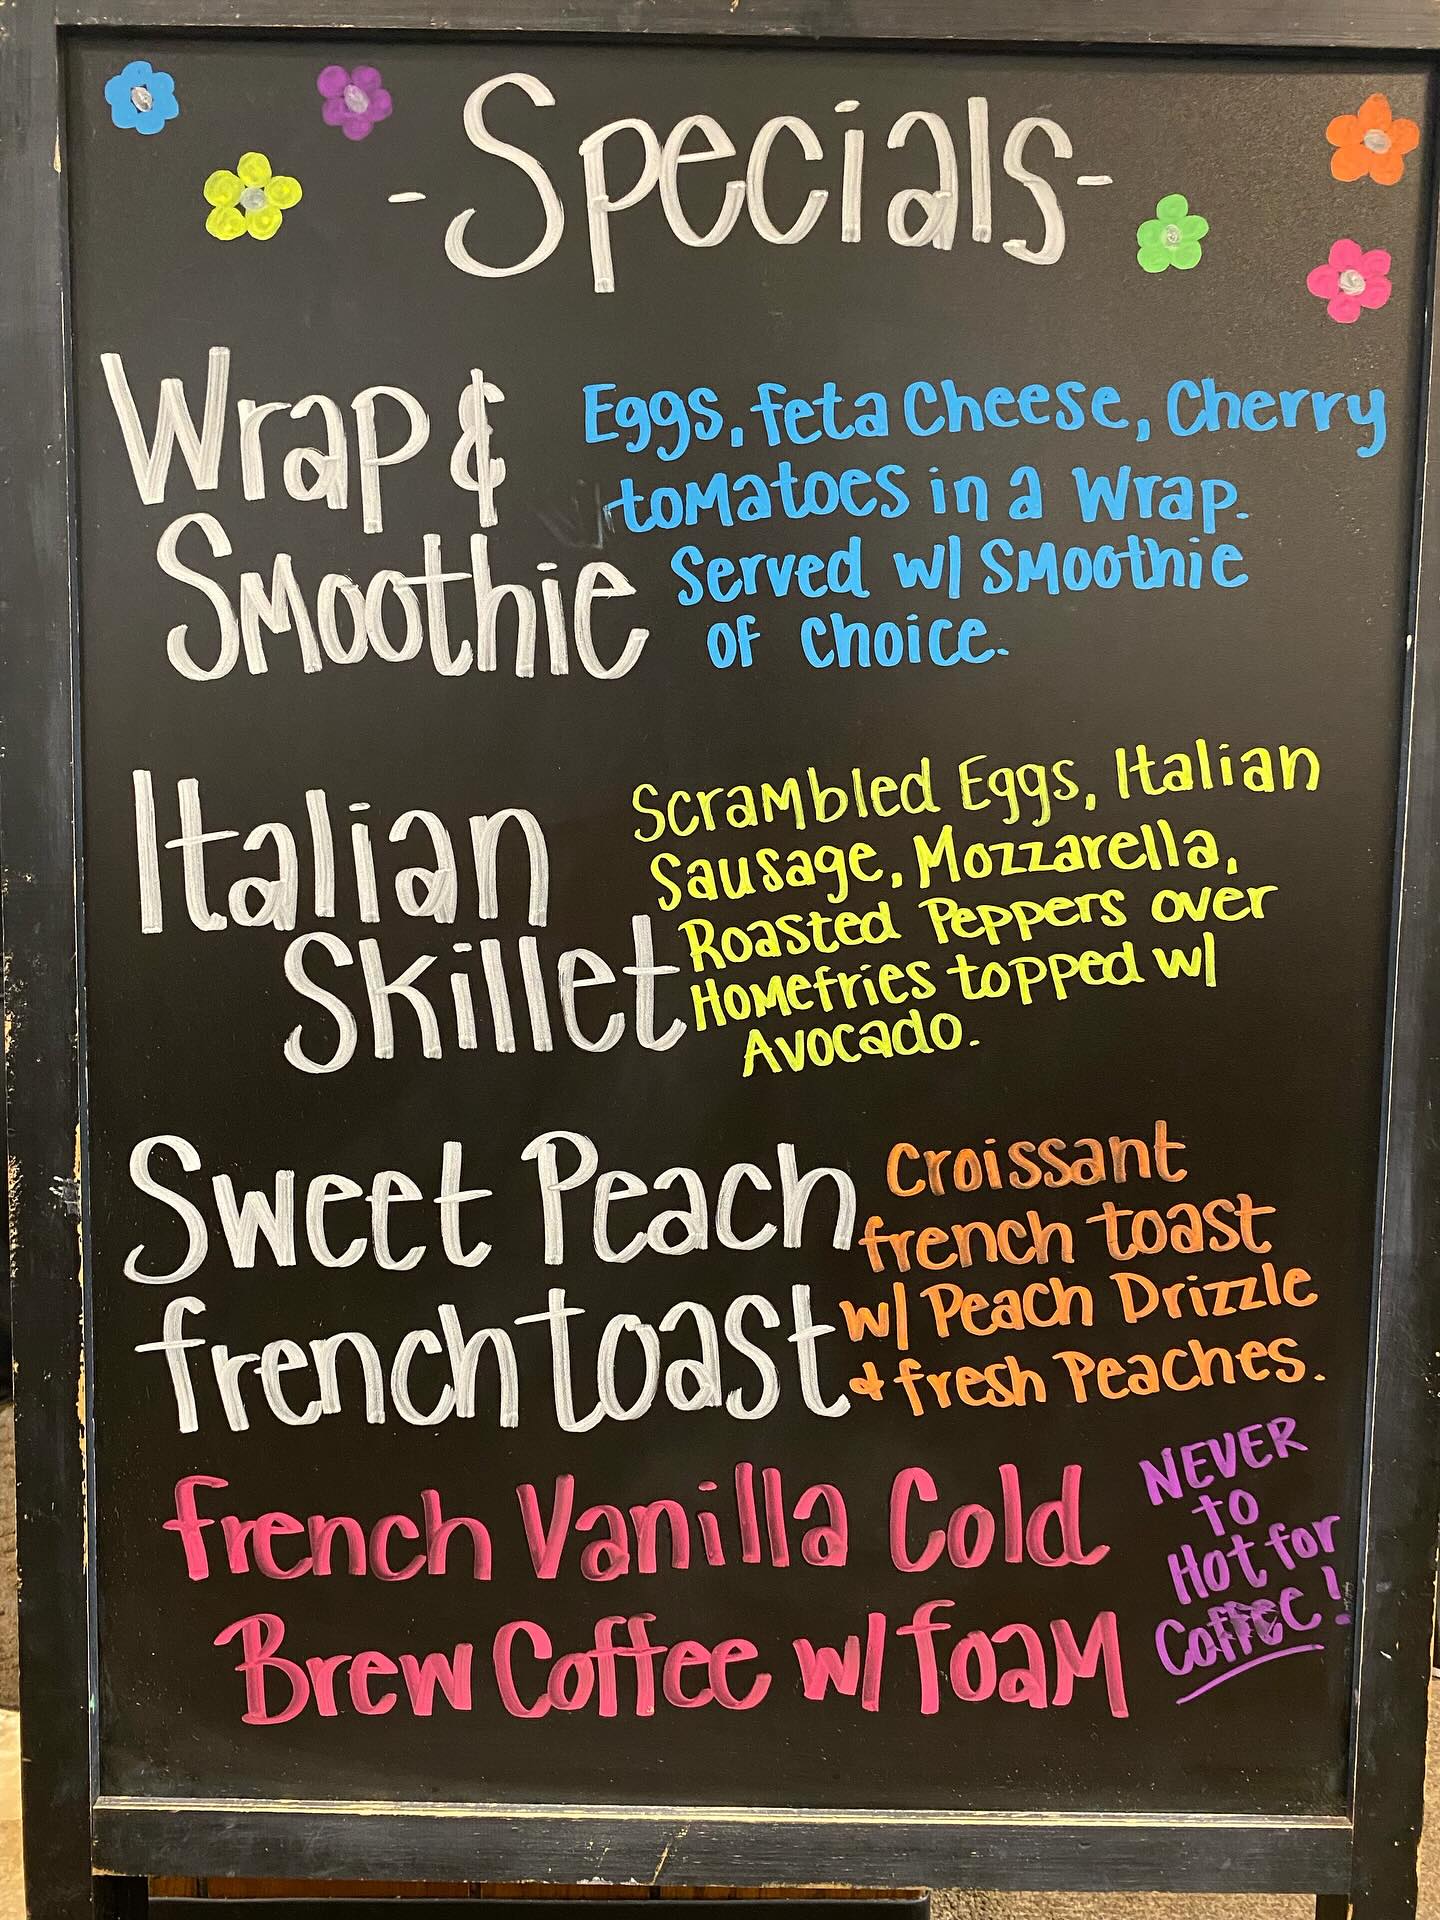 -Specials-
Wrap &
Smoothie
Eggs, feta Cheese, Cherry
tomatoes in a Wrap.
Served w/ Smoothie
of choice.
Italian
Skillet
Scrambled Eggs, Italian
Sausage, Mozzarella,
Roasted Peppers over
Homefries topped w/
Avocado.
Sweet Peach
french toast
Croissant
french toast
w/ Peach Drizzle
& fresh Peaches.
french Vanilla Cold
Brew Coffee w/ foam
NEVER
to
Hot for
Coffee!